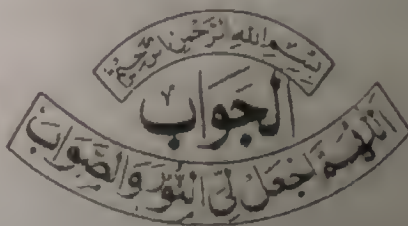 بِسْمِ اللهِ الرَّحْمٰنِ الرَّحِيْمِ
الْجَوَابُ
اَللّٰهُمَّ اجْعَلْ لِّيَ النُّوْرَ وَالصَّوَابَ